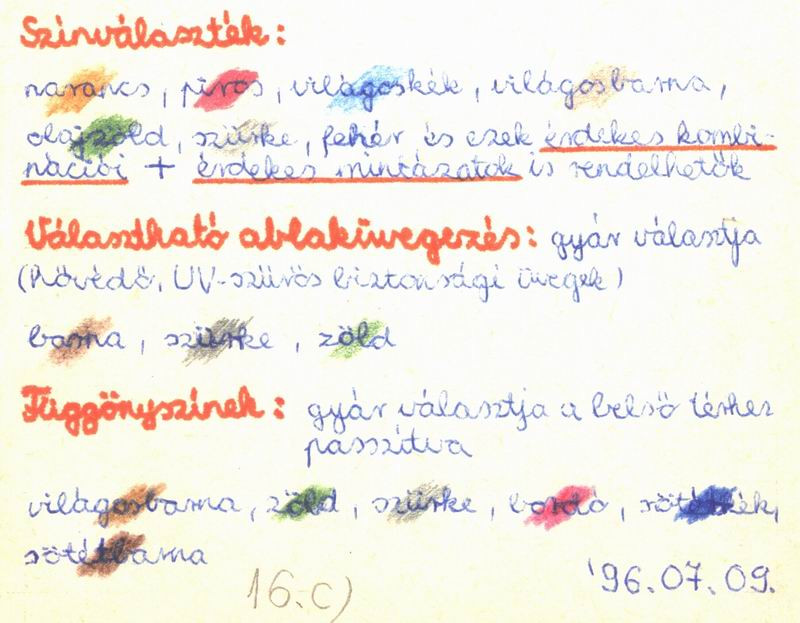 Színválaszték:
narancs, piros, világoskék, világosbarna,
olajzöld, szürke, fehér és ezek érdekes kombi-
nációi + érdekes mintázatok is rendelhetők
Választható ablaküvegezés: gyár választja
(Hővédő, UV-szűrős biztonsági üvegek)
barna, szürke, zöld
Függönyszínek: gyár választja a belső térhez
passzítva
világosbarna, zöld, szürke, bordó, sötétkék,
sötétbarna
16.c)
'96.07.09.